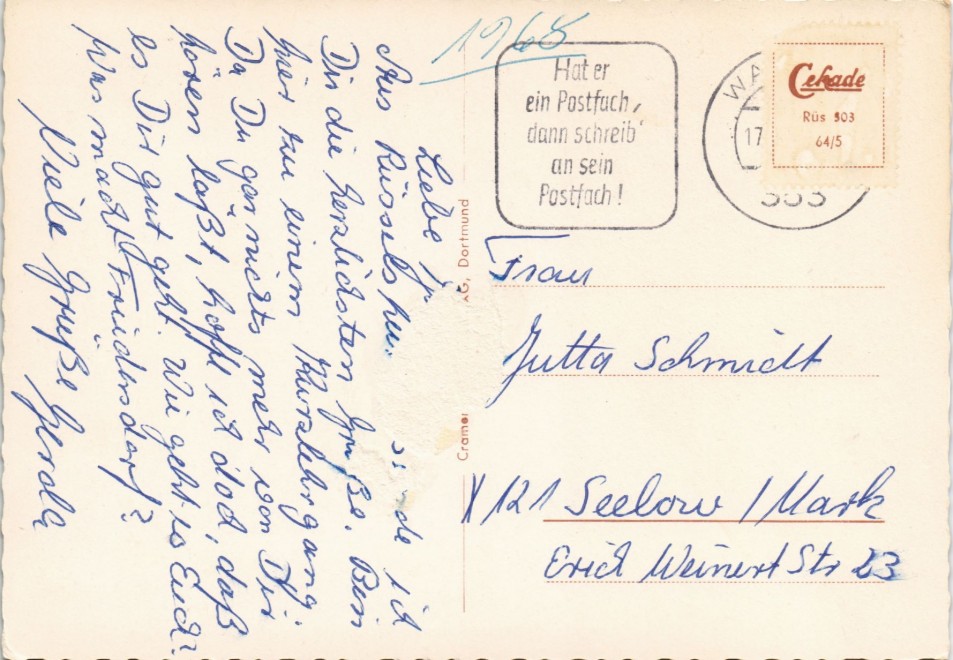 1968
Hat er
ein Postfach,
dann schreib'
an sein
Postfach!
WA
17.
353
Cekade
Rüs 503
64/5
Liebe
Aus Rüsselsh de ich
Dir die herzlichsten Grüße. Bin
hier zu einem Kurzlehrgang.
Da Du gar nichts mehr von Dir
hören läßt, hoffe ich doch, daß
es Dir gut geht. Wie geht es Euch?
Was macht Friedersdorf?
Viele Grüße Gerola
AG, Dortmund
Cramer
Frau
Jutta Schmidt
X 121 Seelow / Mark
Erich Weinert Str 23